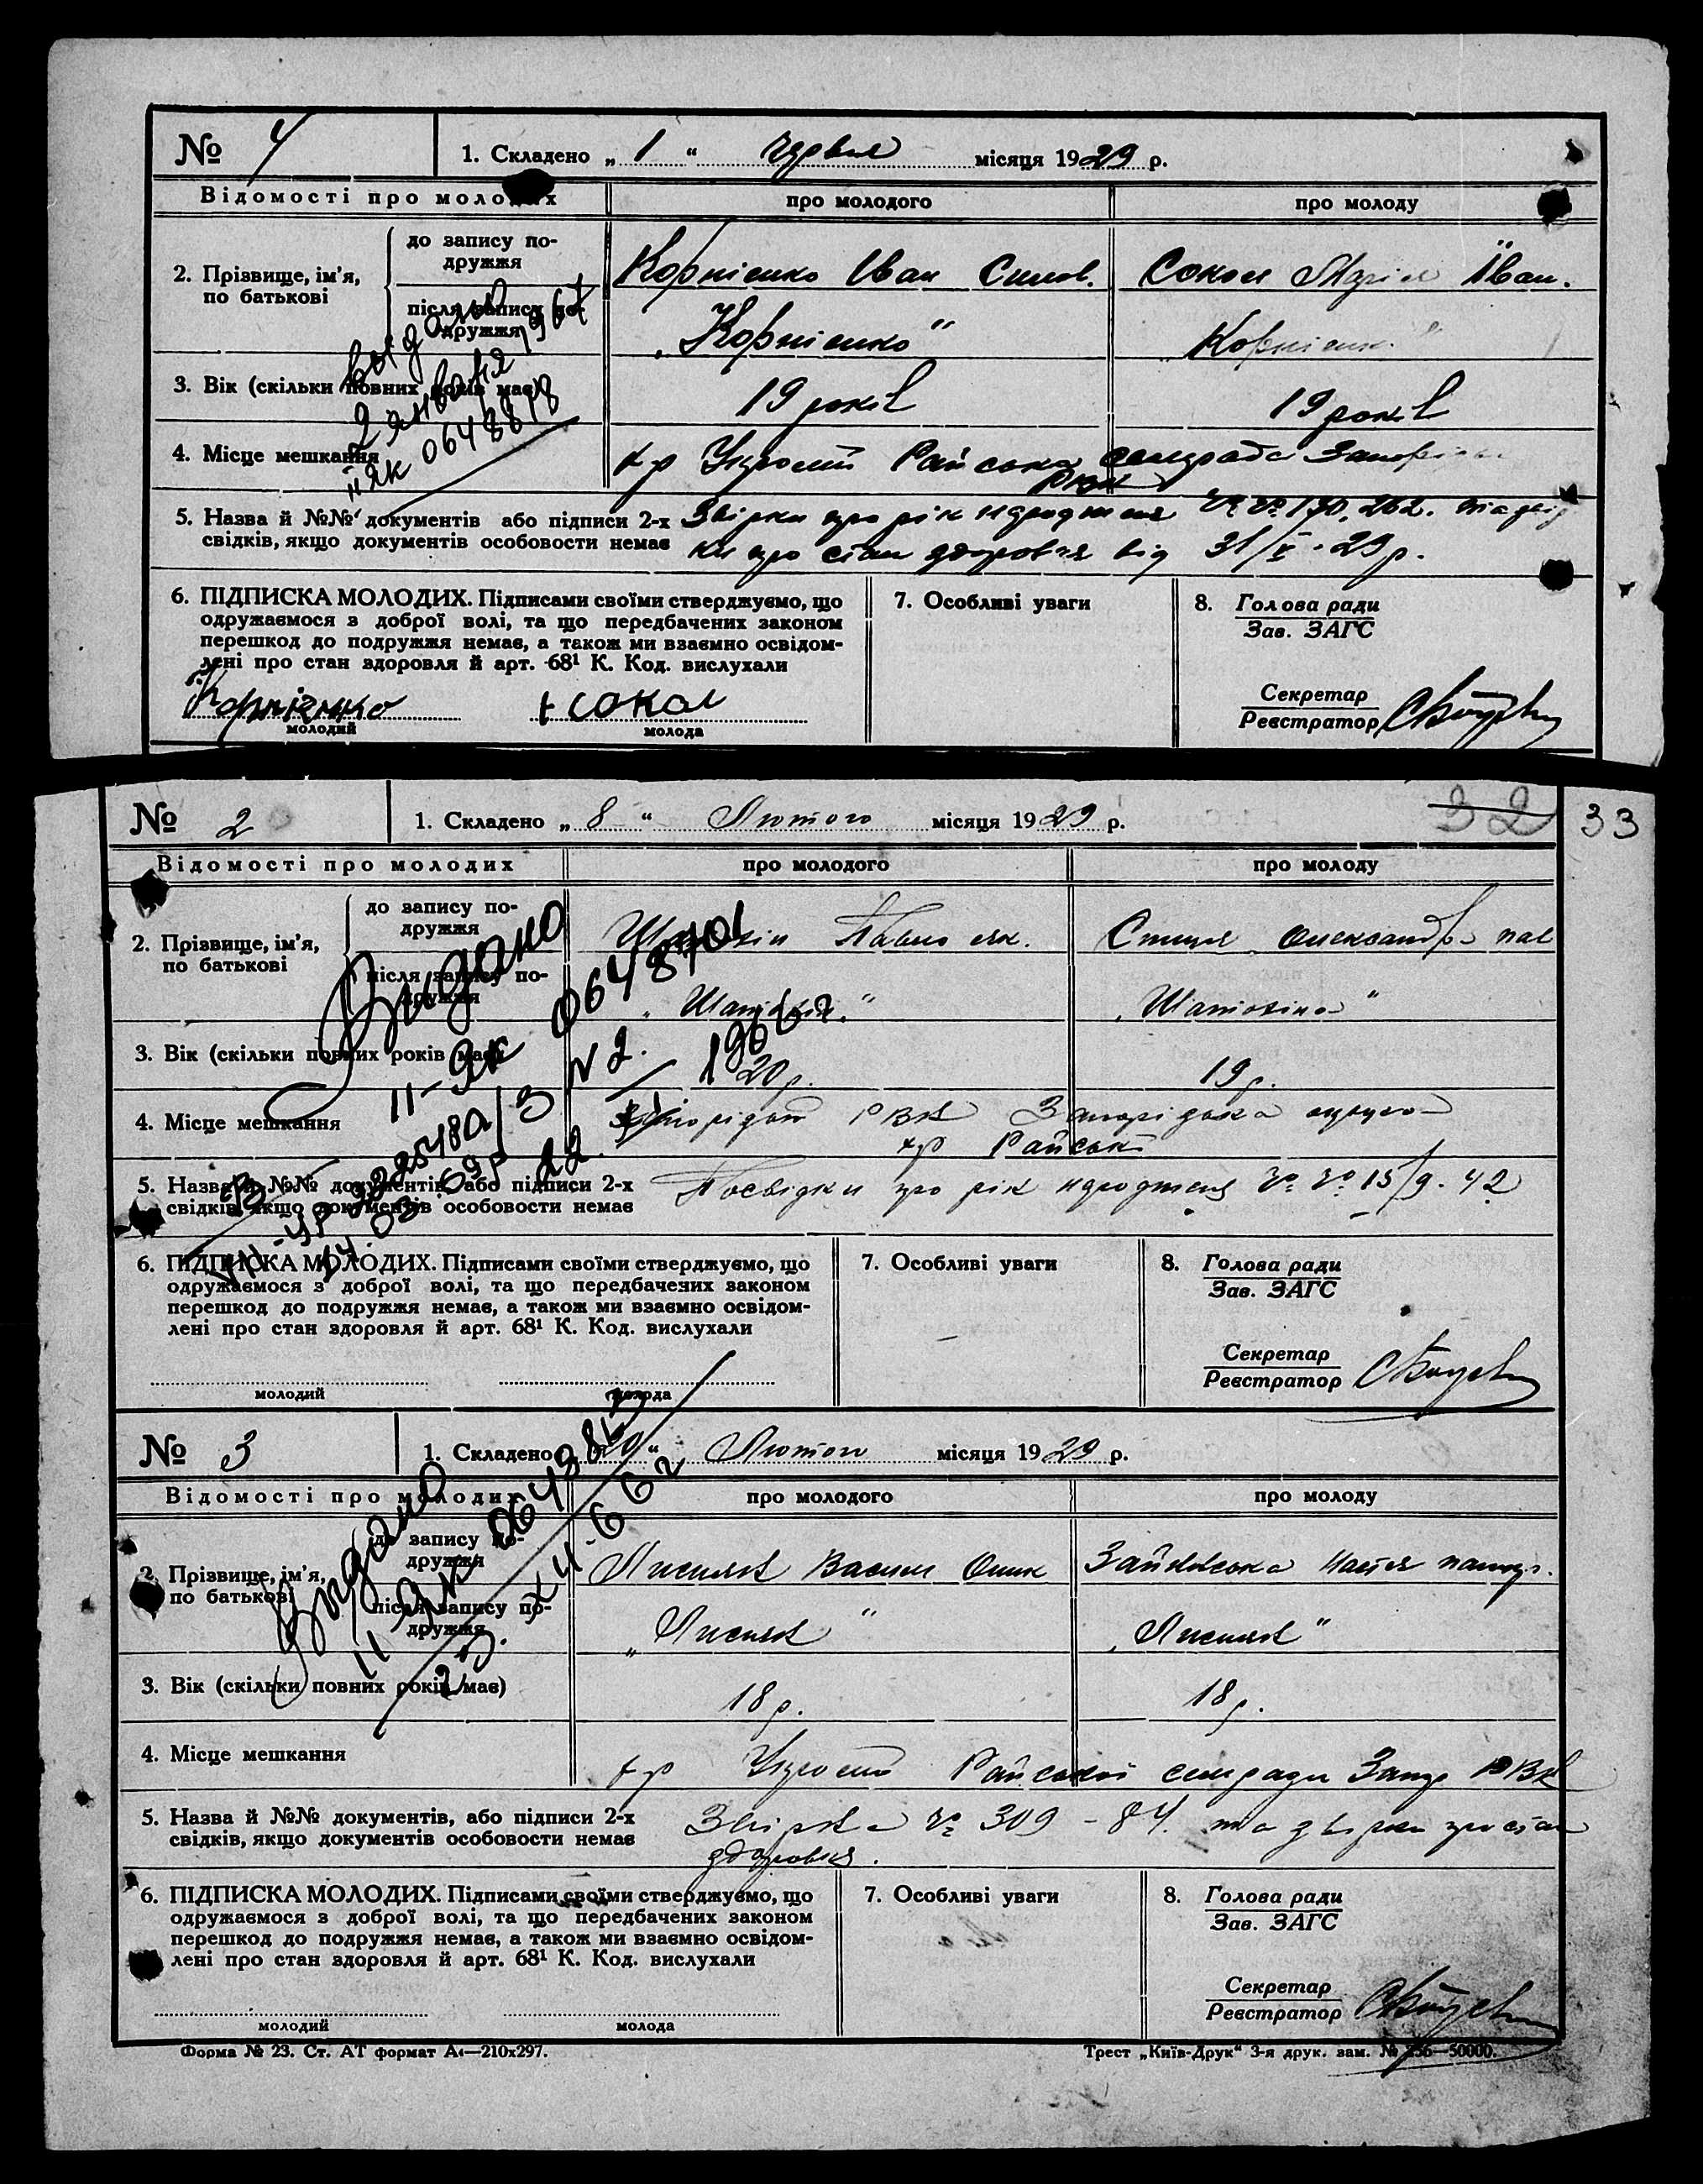 № 4 1. Складено „ 1 “ червня місяця 1929 р.
Відомості про молодих про молодого про молоду
2. Прізвище, ім’я, по батькові
до запису подружжя Корнієнко Іван Симов. Сокол Марія Іван.
після запису подружжя „Корнієнко“ Корнієнк
3. Вік (скільки повних років має) 19 років 19 років
4. Місце мешкання х-р Райська сельрада
РВК
5. Назва й №№ документів або підписи 2-х Звірки про рік народження №№ 170, 262. та
свідків, якщо документів особовости немає ки про стан здоров’я від 31/V-29 р.
Выдано
2 января 1967
II ЯК 0648818
6. ПІДПИСКА МОЛОДИХ. Підписами своїми стверджуємо, що
одружаємося з доброї волі, та що передбачених законом
перешкод до подружжя немає, а також ми взаємно освідом-
лені про стан здоровля й арт. 68¹ К. Код. вислухали
7. Особливі уваги
8. Голова ради
Зав. ЗАГС
Секретар
Реєстратор
Корнієнко Сокол
молодий молода
№ 2 1. Складено „ 8 “ Лютого місяця 1929 р.
32 33
Відомості про молодих про молодого про молоду
2. Прізвище, ім’я, по батькові
до запису подружжя Павло як. Олександра пав
після запису подружжя
3. Вік (скільки повних років має) 20 р. 19 р.
4. Місце мешкання РВК Запорізька округа
х-р Райськ
5. Назва й №№ документів, або підписи 2-х Посвідки про рік народження №№ 15/9. 42
свідків, якщо документів особовости немає
Видано
II-ЯК 0648701
N 2.
22 1966 г.
6. ПІДПИСКА МОЛОДИХ. Підписами своїми стверджуємо, що
одружаємося з доброї волі, та що передбачених законом
перешкод до подружжя немає, а також ми взаємно освідом-
лені про стан здоровля й арт. 68¹ К. Код. вислухали
7. Особливі уваги
8. Голова ради
Зав. ЗАГС
Секретар
Реєстратор
молодий молода
№ 3 1. Складено Лютого місяця 1929 р.
Відомості про молодих про молодого про молоду
2. Прізвище, ім’я, по батькові
до запису подружжя Лисняк Васил Зайковська Настя
після запису подружжя „Лисняк“ „Лисняк“
3. Вік (скільки повних років має) 18 р. 18 р.
4. Місце мешкання х-р Райської сельради Запор РВК
5. Назва й №№ документів, або підписи 2-х Звірка № 309 - 84. та звірки про стан
свідків, якщо документів особовости немає здоровля.
Видано
II ЯК
23. XII-66 г
6. ПІДПИСКА МОЛОДИХ. Підписами своїми стверджуємо, що
одружаємося з доброї волі, та що передбачених законом
перешкод до подружжя немає, а також ми взаємно освідом-
лені про стан здоровля й арт. 68¹ К. Код. вислухали
7. Особливі уваги
8. Голова ради
Зав. ЗАГС
Секретар
Реєстратор
молодий молода
Форма № 23. Ст. АТ формат А4—210х297. Трест „Київ-Друк“ 3-я друк. зам. № 256—50000.